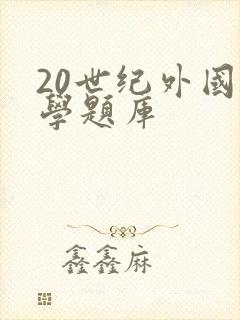 20世纪外國
學題库
鑫鑫麻